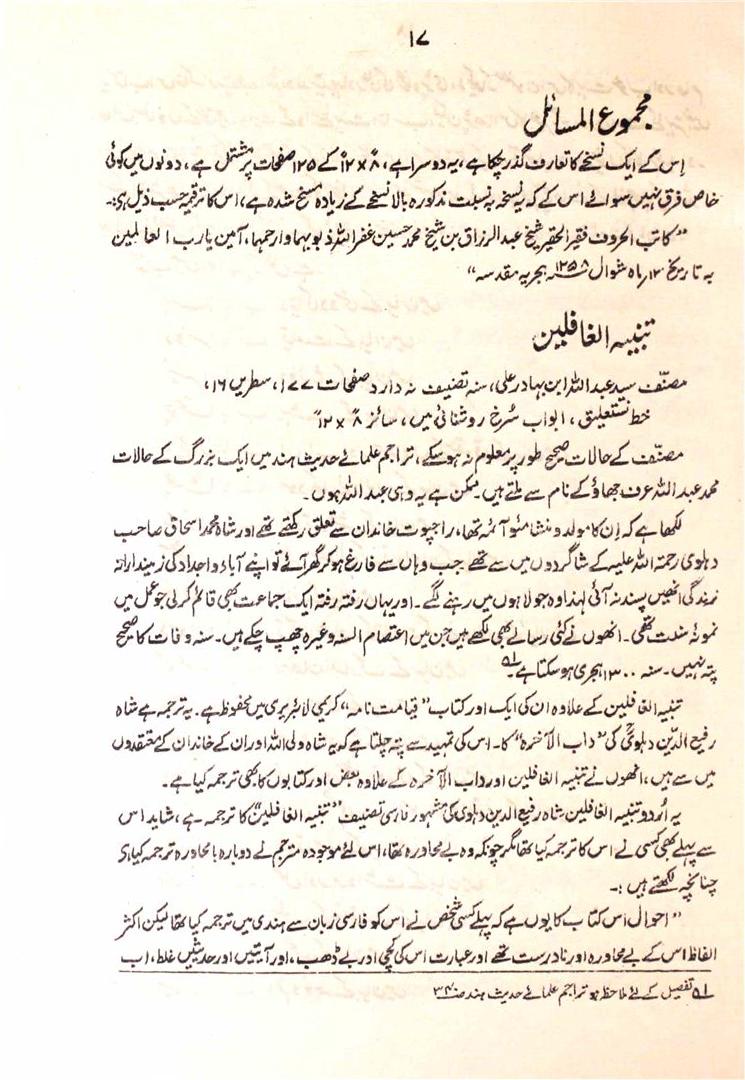 ۱۷
مجموع المسائل
اِس کے ایک نسخے کا تعارف گذر چکا ہے، یہ دوسرا ہے، ۸ × ۱۲ کے ۱۲۵ صفحات پر مشتمل ہے، دونوں میں کوئی
خاص فرق نہیں سوائے اس کے کہ یہ نسخہ بہ نسبت مذکورہ بالا نسخے کے زیادہ مسخ شدہ ہے، اس کا ترقیمہ حسب ذیل ہی:۔
”کاتب الحروف فقیر الحقیر شیخ عبد الرزاق بن شیخ محمد حسین غفر اللہ ذنوبہما وارحمہما، آمین یا رب العالمین
بہ تاریخ ۱۲؍ ماہ شوال ۱۲۵۸ ہجریہ مقدسہ“
تنبیہ الغافلین
مصنّف سید عبد اللہ ابن بہادر علی، سنہ تصنیف نہ دارد صفحات ۱۷۷، سطریں ۱۶،
خط نستعلیق، ابواب سُرخ روشنائی میں، سائز ۸ × ۱۲
مصنّف کے حالات صحیح طور پر معلوم نہ ہو سکے، تراجم علمائے حدیث ہند میں ایک بزرگ کے حالات
محمد عبد اللہ عرف جھاؤ کے نام سے ملتے ہیں۔ ممکن ہے یہ وہی عبد اللہ ہوں۔
لکھا ہے کہ اِن کا مولد و منشا مئو آئمہ تھا، راجپوت خاندان سے تعلق رکھتے تھے اور شاہ محمد اسحاق صاحب
دہلوی رحمتہ اللہ علیہ کے شاگردوں میں سے تھے جب وہاں سے فارغ ہو کر گھر آئے تو اپنے آباء و اجداد کی زمیندارانہ
زندگی انھیں پسند نہ آئی لہٰذا وہ جولاہوں میں رہنے لگے۔ اور یہاں رفتہ رفتہ ایک جماعت بھی قائم کر لی جو عمل میں
نمونۂ سنت تھی۔ انھوں نے کئی رسالے بھی لکھے ہیں جن میں اعتصام السنہ وغیرہ چھپ چکے ہیں۔ سنہ وفات کا صحیح
پتہ نہیں۔ سنہ ۱۳۰۰ ہجری ہو سکتا ہے۔ ؂۱
تنبیہ الغافلین کے علاوہ ان کی ایک اور کتاب ”قیامت نامہ“، کریمی لائبریری میں محفوظ ہے۔ یہ ترجمہ ہے شاہ
رفیع الدّین دہلویؒ کی ”داب الآخرہ“ کا۔ اس کی تمہید سے پتہ چلتا ہے کہ یہ شاہ ولی اللہ اور ان کے خاندان کے معتقدوں
میں سے ہیں، انھوں نے تنبیہ الغافلین اور داب الآخرہ کے علاوہ بعض اور کتابوں کا بھی ترجمہ کیا ہے۔
یہ اُردو تنبیہ الغافلین شاہ رفیع الدین دہلوی کی مشہور فارسی تصنیف ”تنبیہ الغافلین“ کا ترجمہ ہے، شاید اس
سے پہلے بھی کسی نے اس کا ترجمہ کیا تھا مگر چونکہ وہ بے محاورہ تھا، اس لئے موجودہ مترجم نے دوبارہ با محاورہ ترجمہ کیا ہی
چنانچہ لکھتے ہیں:۔
”احوال اس کتاب کا یوں ہے کہ پہلے کسی شخص نے اس کو فارسی زبان سے ہندی میں ترجمہ کیا تھا لیکن اکثر
الفاظ اس کے بے محاورہ اور نادرست تھے اور عبارت اس کی کچی اور بے ڈھب، اور آیتیں اور حدیثیں غلط، اب
؂۱ تفصیل کے لئے ملاحظہ ہو تراجم علمائے حدیث ہند صفحہ ۳۴۰